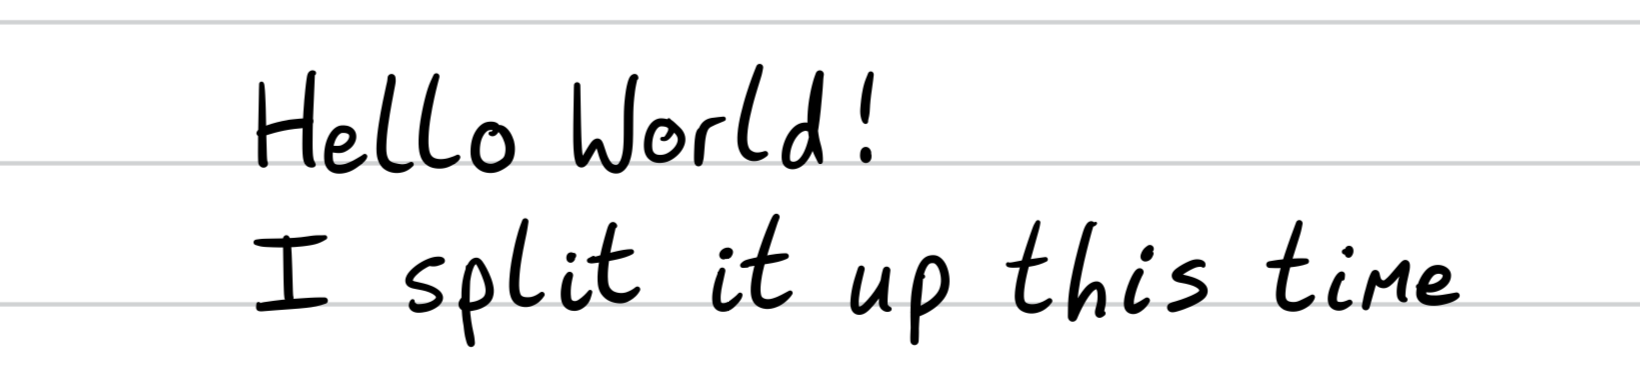 Hello World!
I split it up this time